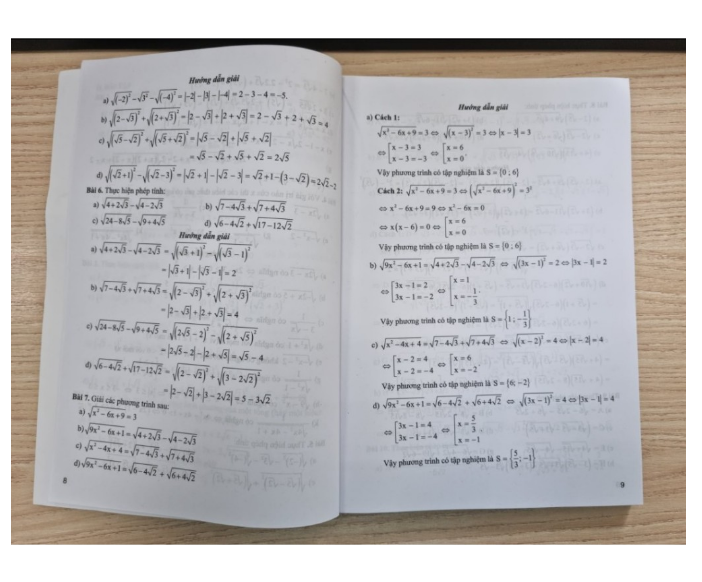 Hướng dẫn giải
a) √(-2)² - √3² - √(-4)² = |-2| - |3| - |-4| = 2 - 3 - 4 = -5.
b) √(2-√3)² + √(2+√3)² = |2-√3| + |2+√3| = 2 - √3 + 2 + √3 = 4
c) √(√5-√2)² + √(√5+√2)² = |√5-√2| + |√5+√2|
= √5 - √2 + √5 + √2 = 2√5
d) √(√2+1)² - √(√2-3)² = |√2+1| - |√2-3| = √2+1-(3-√2) = 2√2-2
Bài 6. Thực hiện phép tính:
a) √4+2√3 - √4-2√3 b) √7-4√3 + √7+4√3
c) √24-8√5 - √9+4√5 d) √6-4√2 + √17-12√2
Hướng dẫn giải
a) √4+2√3 - √4-2√3 = √(√3+1)² - √(√3-1)²
= |√3+1| - |√3-1| = 2
b) √7-4√3 + √7+4√3 = √(2-√3)² + √(2+√3)²
= |2-√3| + |2+√3| = 4
c) √24-8√5 - √9+4√5 = √(2√5-2)² - √(2+√5)²
= |2√5-2| - |2+√5| = √5 - 4
d) √6-4√2 + √17-12√2 = √(2-√2)² + √(3-2√2)²
= |2-√2| + |3-2√2| = 5 - 3√2
Bài 7. Giải các phương trình sau:
a) √x²-6x+9 = 3
b) √9x²-6x+1 = √4+2√3 - √4-2√3
c) √x²-4x+4 = √7-4√3 + √7+4√3
d) √9x²-6x+1 = √6-4√2 + √6+4√2
8
Hướng dẫn giải
a) Cách 1:
√x²-6x+9 = 3 ⇔ √(x-3)² = 3 ⇔ |x-3| = 3
⇔ [x-3=3 ⇔ [x=6
x-3=-3 x=0.
Vậy phương trình có tập nghiệm là S = {0 ; 6}
Cách 2: √x²-6x+9 = 3 ⇔ (√x²-6x+9)² = 3²
⇔ x²-6x+9=9 ⇔ x²-6x=0
⇔ x(x-6)=0 ⇔ [x=6
x=0
Vậy phương trình có tập nghiệm là S = {0 ; 6}
b) √9x²-6x+1 = √4+2√3 - √4-2√3 ⇔ √(3x-1)² = 2 ⇔ |3x-1| = 2
⇔ [3x-1=2 ⇔ [x=1
3x-1=-2 x=-1/3.
Vậy phương trình có tập nghiệm là S = {1 ; -1/3}
c) √x²-4x+4 = √7-4√3 + √7+4√3 ⇔ √(x-2)² = 4 ⇔ |x-2| = 4
⇔ [x-2=4 ⇔ [x=6
x-2=-4 x=-2.
Vậy phương trình có tập nghiệm là S = {6; -2}
d) √9x²-6x+1 = √6-4√2 + √6+4√2 ⇔ √(3x-1)² = 4 ⇔ |3x-1| = 4
⇔ [3x-1=4 ⇔ [x=5/3
3x-1=-4 x=-1
Vậy phương trình có tập nghiệm là S = {5/3 ; -1}
9